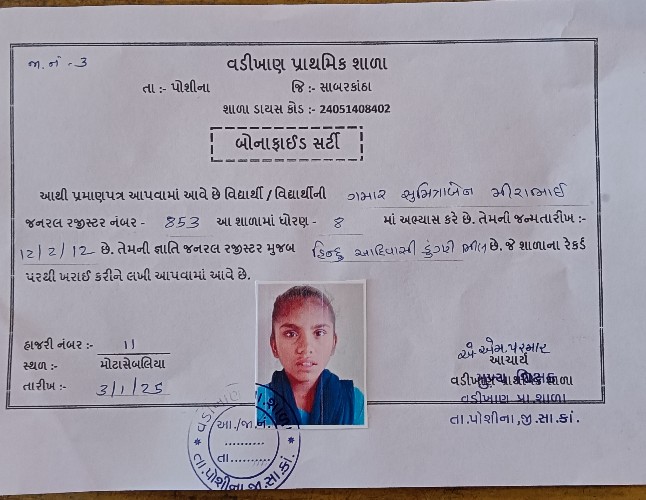 જા.નં - 3
વડીખાણ પ્રાથમિક શાળા
તા :- પોશીના જિ :- સાબરકાંઠા
શાળા ડાયસ કોડ :- 24051408402
બોનાફાઈડ સર્ટી
આથી પ્રમાણપત્ર આપવામાં આવે છે વિદ્યાર્થી / વિદ્યાર્થીની ગમાર સુમિત્રાબેન મીરાભાઈ
જનરલ રજીસ્ટર નંબર - 853 આ શાળામાં ધોરણ - 8 માં અભ્યાસ કરે છે. તેમની જન્મતારીખ :-
12/2/12 છે. તેમની જ્ઞાતિ જનરલ રજીસ્ટર મુજબ હિન્દુ આદિવાસી ડુંગરી ભીલ છે. જે શાળાના રેકર્ડ
પરથી ખરાઈ કરીને લખી આપવામાં આવે છે.
હાજરી નંબર :- 11
સ્થળ :- મોટાસેબલિયા
તારીખ :- 3/1/25
એમ.પરમાર
આચાર્ય
વડીખાણ પ્રાથમિક શાળા
મુખ્ય શિક્ષક
વડીખાણ પ્રા.શાળા
તા.પોશીના,જી.સા.કાં.
વડીખાણ પ્રા.શાળા
આ./જા.નં.
..........
તા..........
તા.પોશીના.જી.સા.કાં.